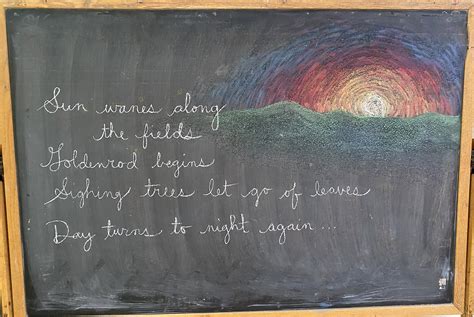 Sun wanes along
the fields
Goldenrod begins
Sighing trees let go of leaves
Day turns to night again...